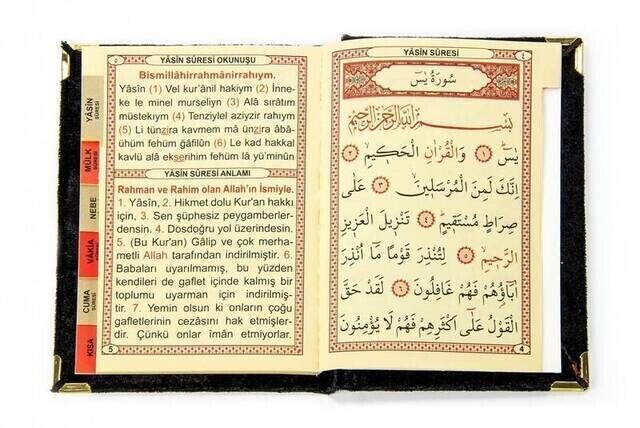 ٥
YÂSÎN SÛRESİ OKUNUŞU
Bismillâhirrahmânirrahıym.
Yâsîn (1) Vel kur'ânil hakiym (2) İnne-
ke le minel murseliyn (3) Alâ sırâtım
müstekıym (4) Tenziylel aziyzir rahıym
(5) Li tünzira kavmem mâ ünzira âbâ-
ühüm fehüm ğâfilûn (6) Le kad hakkal
kavlü alâ ekserihim fehüm lâ yü'minûn
YÂSÎN SÛRESİ ANLAMI
Rahman ve Rahim olan Allah'ın İsmiyle.
1. Yâsîn, 2. Hikmet dolu Kur'an hakkı
için, 3. Sen şüphesiz peygamberler-
densin. 4. Dosdoğru yol üzerindesin.
5. (Bu Kur'an) Gâlip ve çok merha-
metli Allah tarafından indirilmiştir. 6.
Babaları uyarılmamış, bu yüzden
kendileri de gaflet içinde kalmış bir
toplumu uyarman için indirilmiş-
tir. 7. Yemin olsun ki onların çoğu
gafletlerinin cezâsını hak etmişler-
dir. Çünkü onlar îman etmiyorlar.
5
YÂSÎN SÛRESİ
MÜLK SÛRESİ
NEBE
VÂKIA SÛRESİ
CUMA SÛRESİ
KISA
YÂSÎN SÛRESİ
٤
سُورَةُ يٰسٓ
بِسْمِ اللّٰهِ الرَّحْمٰنِ الرَّحِيمِ
يٰسٓ ﴿١﴾ وَالْقُرْاٰنِ الْحَكِيمِ ﴿٢﴾
اِنَّكَ لَمِنَ الْمُرْسَلِينَ ﴿٣﴾ عَلٰى
صِرَاطٍ مُسْتَقِيمٍ ﴿٤﴾ تَنْزِيلَ الْعَزِيزِ
الرَّحِيمِ ﴿٥﴾ لِتُنْذِرَ قَوْمًا مَٓا اُنْذِرَ
اٰبَٓاؤُهُمْ فَهُمْ غَافِلُونَ ﴿٦﴾ لَقَدْ حَقَّ
الْقَوْلُ عَلٰٓى اَكْثَرِهِمْ فَهُمْ لَا يُؤْمِنُونَ
4